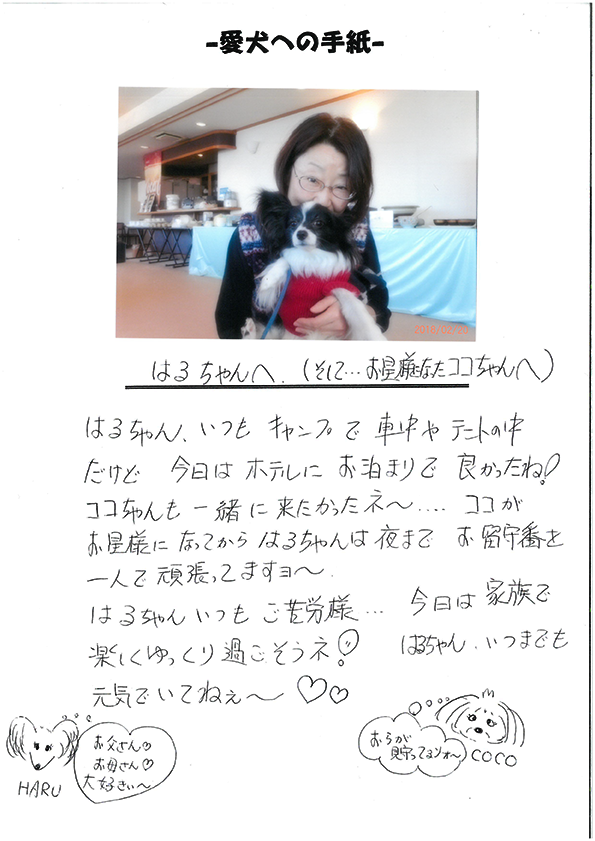 -愛犬への手紙-
2018/02/09
はるちゃんへ.(そして…お星様になったココちゃんへ)
はるちゃん、いつも キャンプで 車中や テントの中
だけど 今日は ホテルに お泊まりで 良かったね!
ココちゃんも 一緒に 来たかったネ〜.... ココが
お星様に なってから はるちゃんは 夜まで お留守番を
一人で 頑張ってますヨ〜.
はるちゃん いつも ご苦労様... 今日は 家族で
楽しくゆっくり 過ごそうネ! はるちゃん.いつまでも
元気でいてねぇ〜♡♡
お父さん♡
お母さん♡
大好きぃ〜
HARU
おらが
COCO